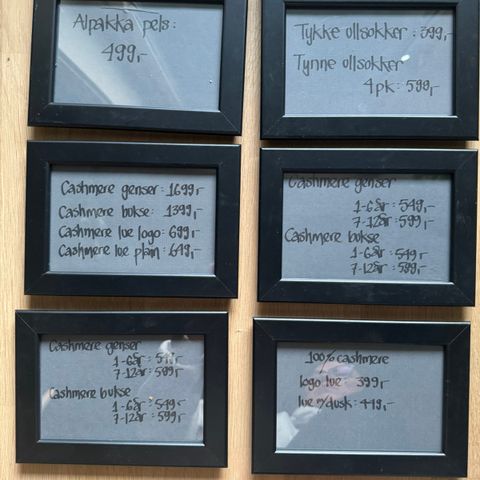 Alpakka pels:
499,-
Tykke ullsokker: 399,-
Tynne ullsokker
4pk: 599,-
Cashmere genser: 1699,-
Cashmere bukse: 1399,-
Cashmere lue logo: 699,-
Cashmere lue plain: 649,-
Cashmere genser
1-6år: 549,-
7-12år: 599,-
Cashmere bukse
1-6år: 549,-
7-12år: 599,-
Cashmere genser
1-6år: 549,-
7-12år: 599,-
Cashmere bukse
1-6år: 549,-
7-12år: 599,-
100% cashmere
logo lue: 399,-
lue m/dusk: 449,-